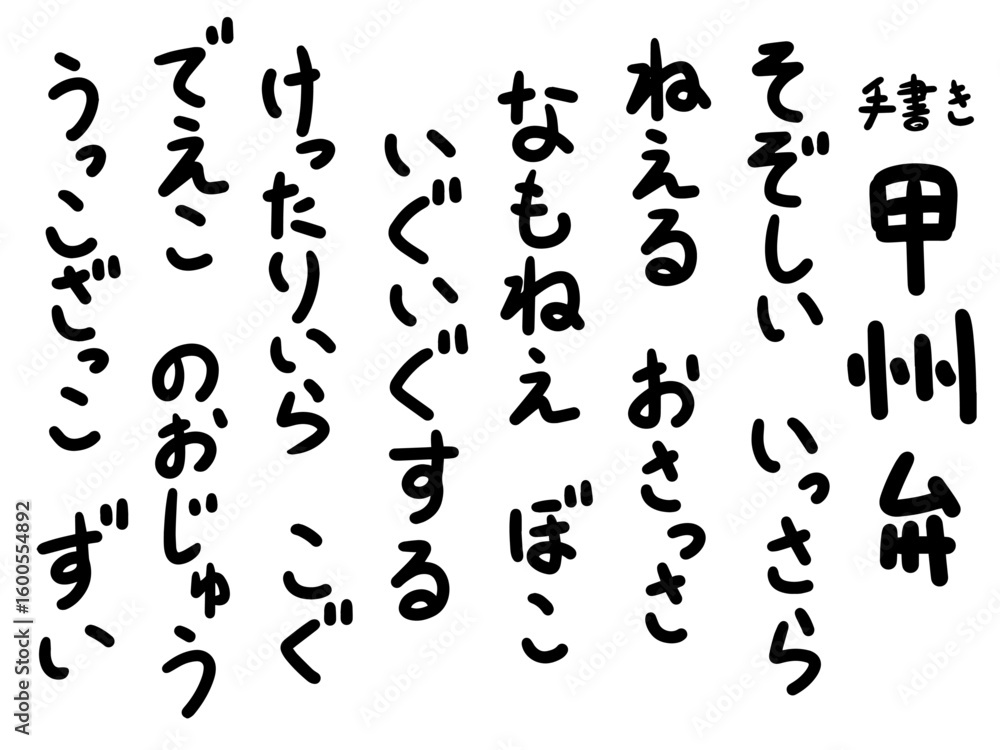 手書き
甲州弁
そぞしい いっさら
ねえる おさっさ
なもねえ ぼこ
いぐいぐする
けったりいら こぐ
でえこ のおじゅう
うっこざっこ ずい
Adobe Stock | #1600554892